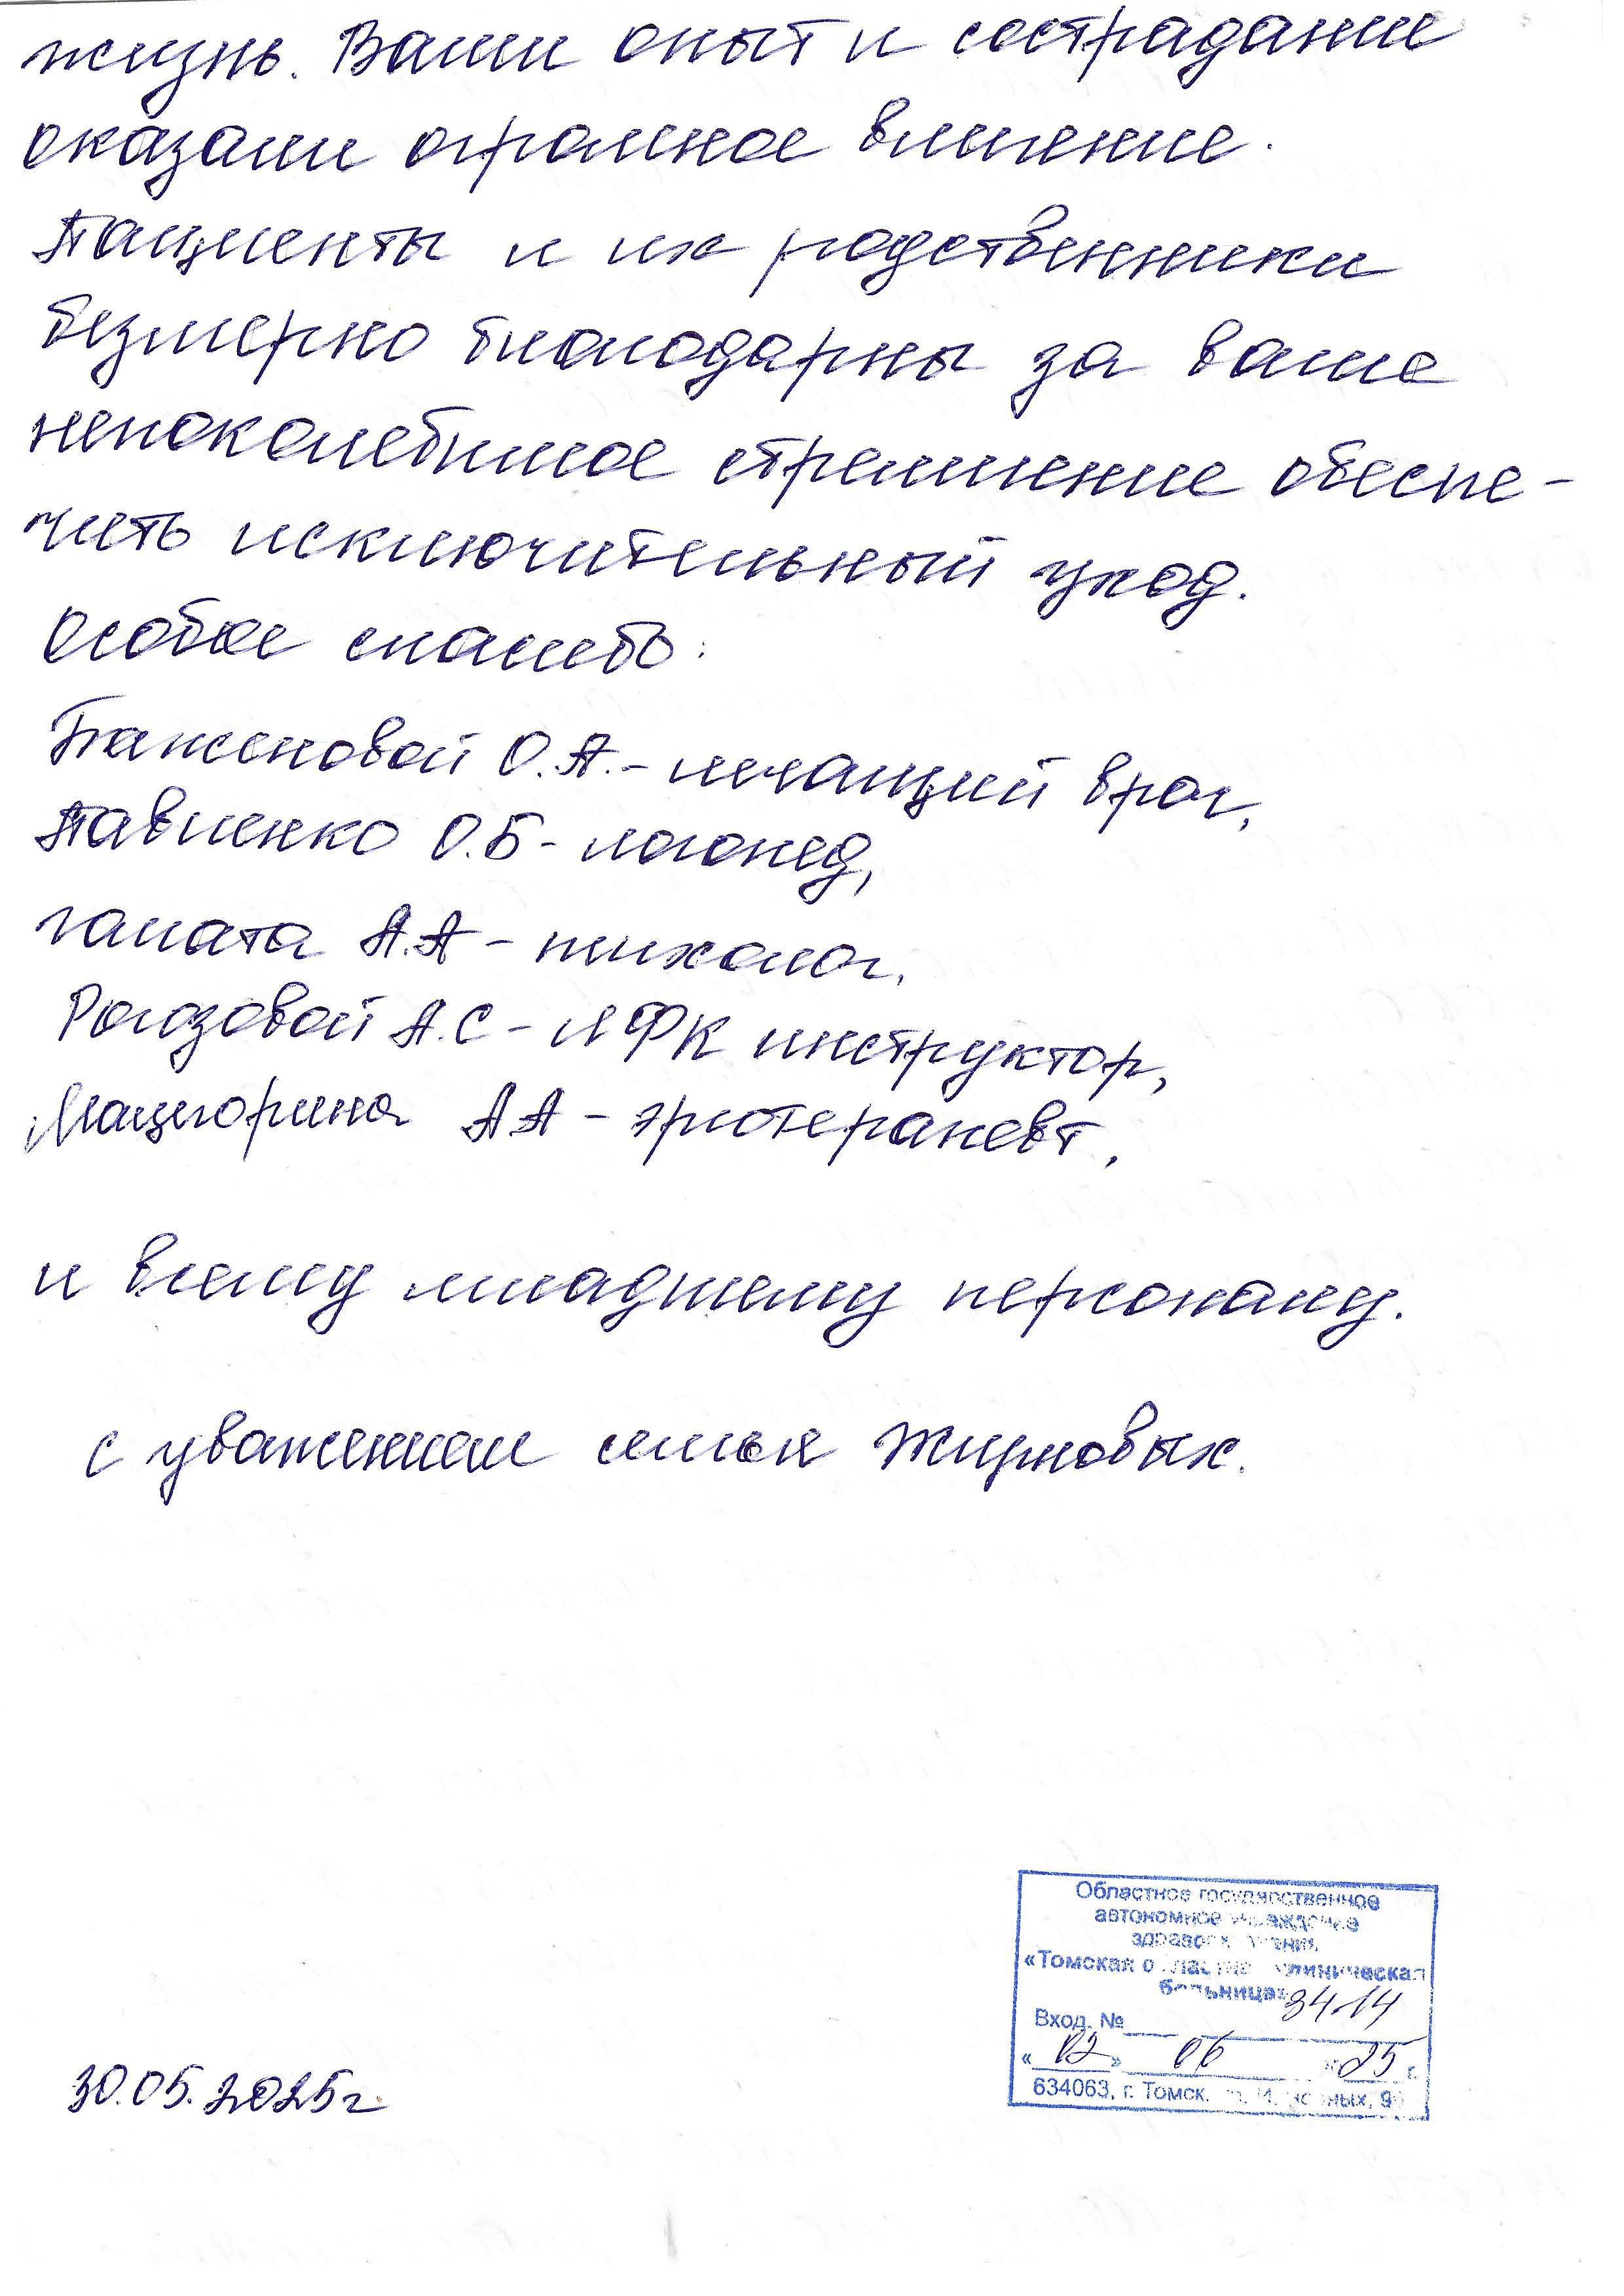 жизнь. Ваши опыт и сострадание
оказали огромное влияние.
Пациенты и их родственники
безмерно благодарны за ваше
непоколебимое стремление обеспе-
чить исключительный уход.
Особое спасибо:
Баженовой О.А. - лечащий врач,
Павленко О.Б - логопед,
Галата А.А - психолог,
Рогозовой А.С - ЛФК инструктор,
Мацюрина А А - эрготерапевт,
и всему младшему персоналу.
с уважением семья Жирновых.
Областное государственное
автономное учреждение
здравоохранения
«Томская областная клиническая
больница»
3414
Вход. №
«02» 06 25 г.
634063, г. Томск,
30.05.2025г.